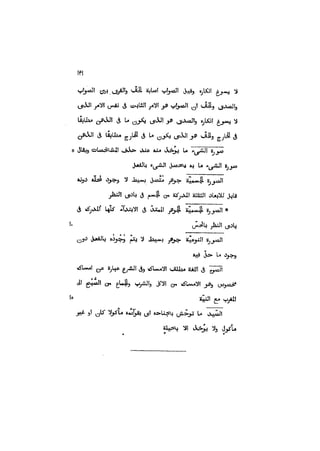 ١٤١
لا يسوغ انكاره وقيل الصواب اصابة الحقّ والفرق بين الصواب
والصدق والحقّ ان الصواب هو الامر الثابت فى نفس الامر الذى
لا يسوغ انكاره والصدق هو الذى يكون ما فى الذهن مطابقا
لما فى الخارج والحقّ هو الذى يكون ما فى الخارج مطابقا لما فى الذهن
صورة الشىء ما يؤخذ منه عند حذف المشخصات ويقال ٥
صورة الشىء ما به يحصل الشىء بالفعل
الصورة الجسمية جوهر متّصل بسيط لا وجود لمحلّه دونه
قابل للابعاد الثلثة المدركة من الجسم فى بادى النظر
* الصورة الجسمية الجوهر الممتدّ فى الابعاد كلّها المدرك فى
بادى النظر بالحسّ ١٠
الصورة النوعيّة جوهر بسيط لا يتمّ وجوده بالفعل دون
وجود ما حلّ فيه
الصوم فى اللغة مطلق الامساك وفى الشرع عبارة عن امساك
مخصوص وهو الامساك عن الاكل والشرب والجماع من الصبح الى
المغرب مع النيّة ١٥
الصيد ما توحّش بجناحه او بقوائمه مأكولا كان او غير
مأكول ولا يؤخذ الا بحيلة